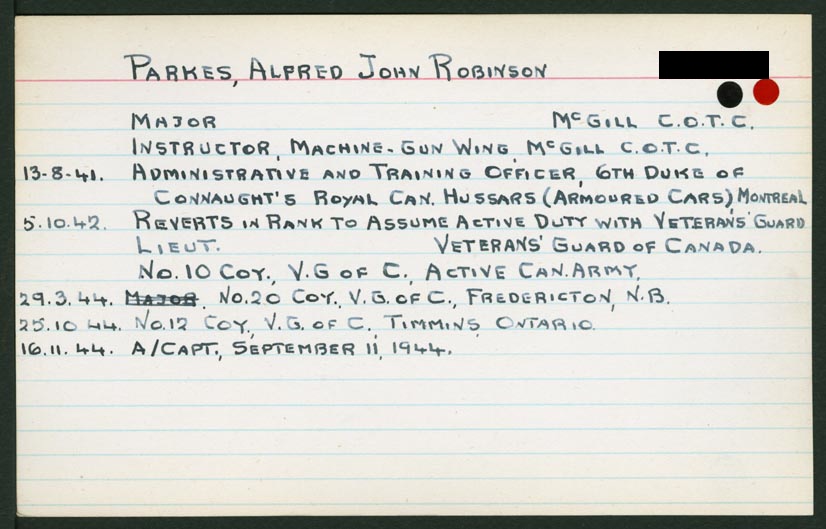 PARKES, ALFRED JOHN ROBINSON
MAJOR McGILL C.O.T.C.
INSTRUCTOR, MACHINE-GUN WING, McGILL C.O.T.C.
13-8-41. ADMINISTRATIVE AND TRAINING OFFICER, 6TH DUKE OF
CONNAUGHT'S ROYAL CAN. HUSSARS (ARMOURED CARS) MONTREAL
5.10.42. REVERTS IN RANK TO ASSUME ACTIVE DUTY WITH VETERANS' GUARD
LIEUT. VETERANS' GUARD OF CANADA.
No. 10 COY., V.G OF C., ACTIVE CAN. ARMY.
29.3.44. MAJOR, No.20 COY., V.G. OF C., FREDERICTON, N.B.
25.10 44. No.12 COY, V.G. OF C., TIMMINS, ONTARIO.
16.11.44. A/CAPT., SEPTEMBER 11, 1944.